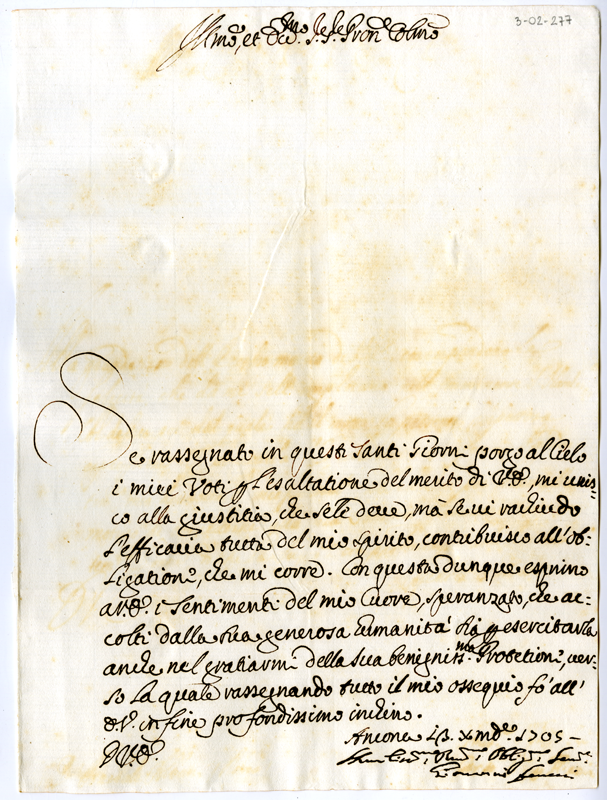 3-02-277
Ill.mo, et Ecc.mo S.r S.r Pron. Colmo
Se rassegnato in questi Santi Giorni porgo al Cielo
i miei Voti p l'esaltatione del merito di V.E., mi unis=
co alla giustitia, che se le deve, mà se vi racchiudo
l'efficacia tutta del mio spirito, contribuisco all'ob=
ligatione, che mi corre. Con questa dunque esprimo
a V.E. i sentimenti del mio Cuore, speranzato, che ac=
colti dalla sua generosa humanità sia p esercitarla
anche nel gratiarmi della sua benigniss.ma Protetione, ver=
so la quale rassegnando tutto il mio ossequio fò all'
E.V. in fine profondissimo inchino.
Ancona 13. Xmbre. 1705 =
D.V.E.